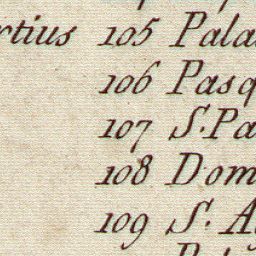 rtius 105 Pala
106 Pasq
107 S. Pa
108 Dom
109 S. A